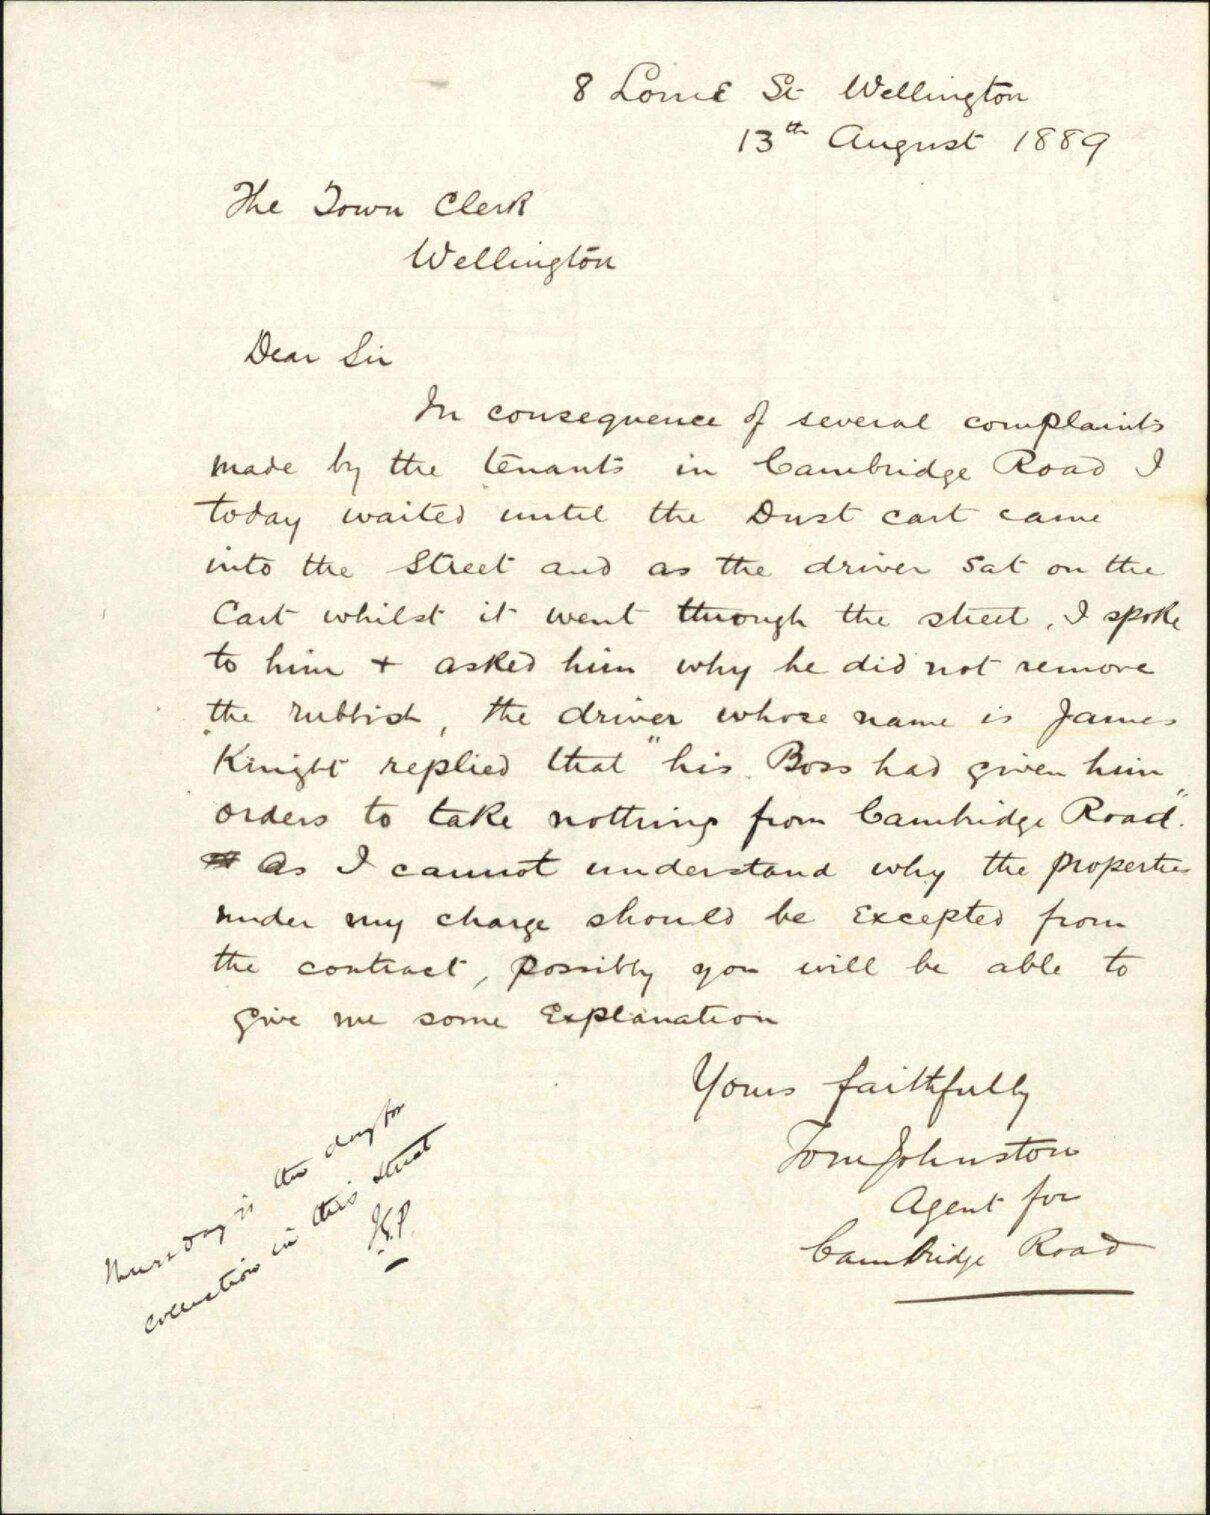 8 Lorne St Wellington
13th August 1889
The Town Clerk
Wellington
Dear Sir
In consequence of several complaints
made by the tenants in Cambridge Road I
today waited until the Dust cart came
into the Street and as the driver sat on the
Cart whilst it went through the street, I spoke
to him + asked him why he did not remove
the rubbish, the driver whose name is James
Knight replied that "his Boss had given him
orders to take nothing from Cambridge Road".
As I cannot understand why the properties
under my charge should be excepted from
the contract, possibly you will be able to
give me some Explanation
Yours faithfully
Tom Johnston
Agent for
Cambridge Road
Thursday is the day for
collection in this street